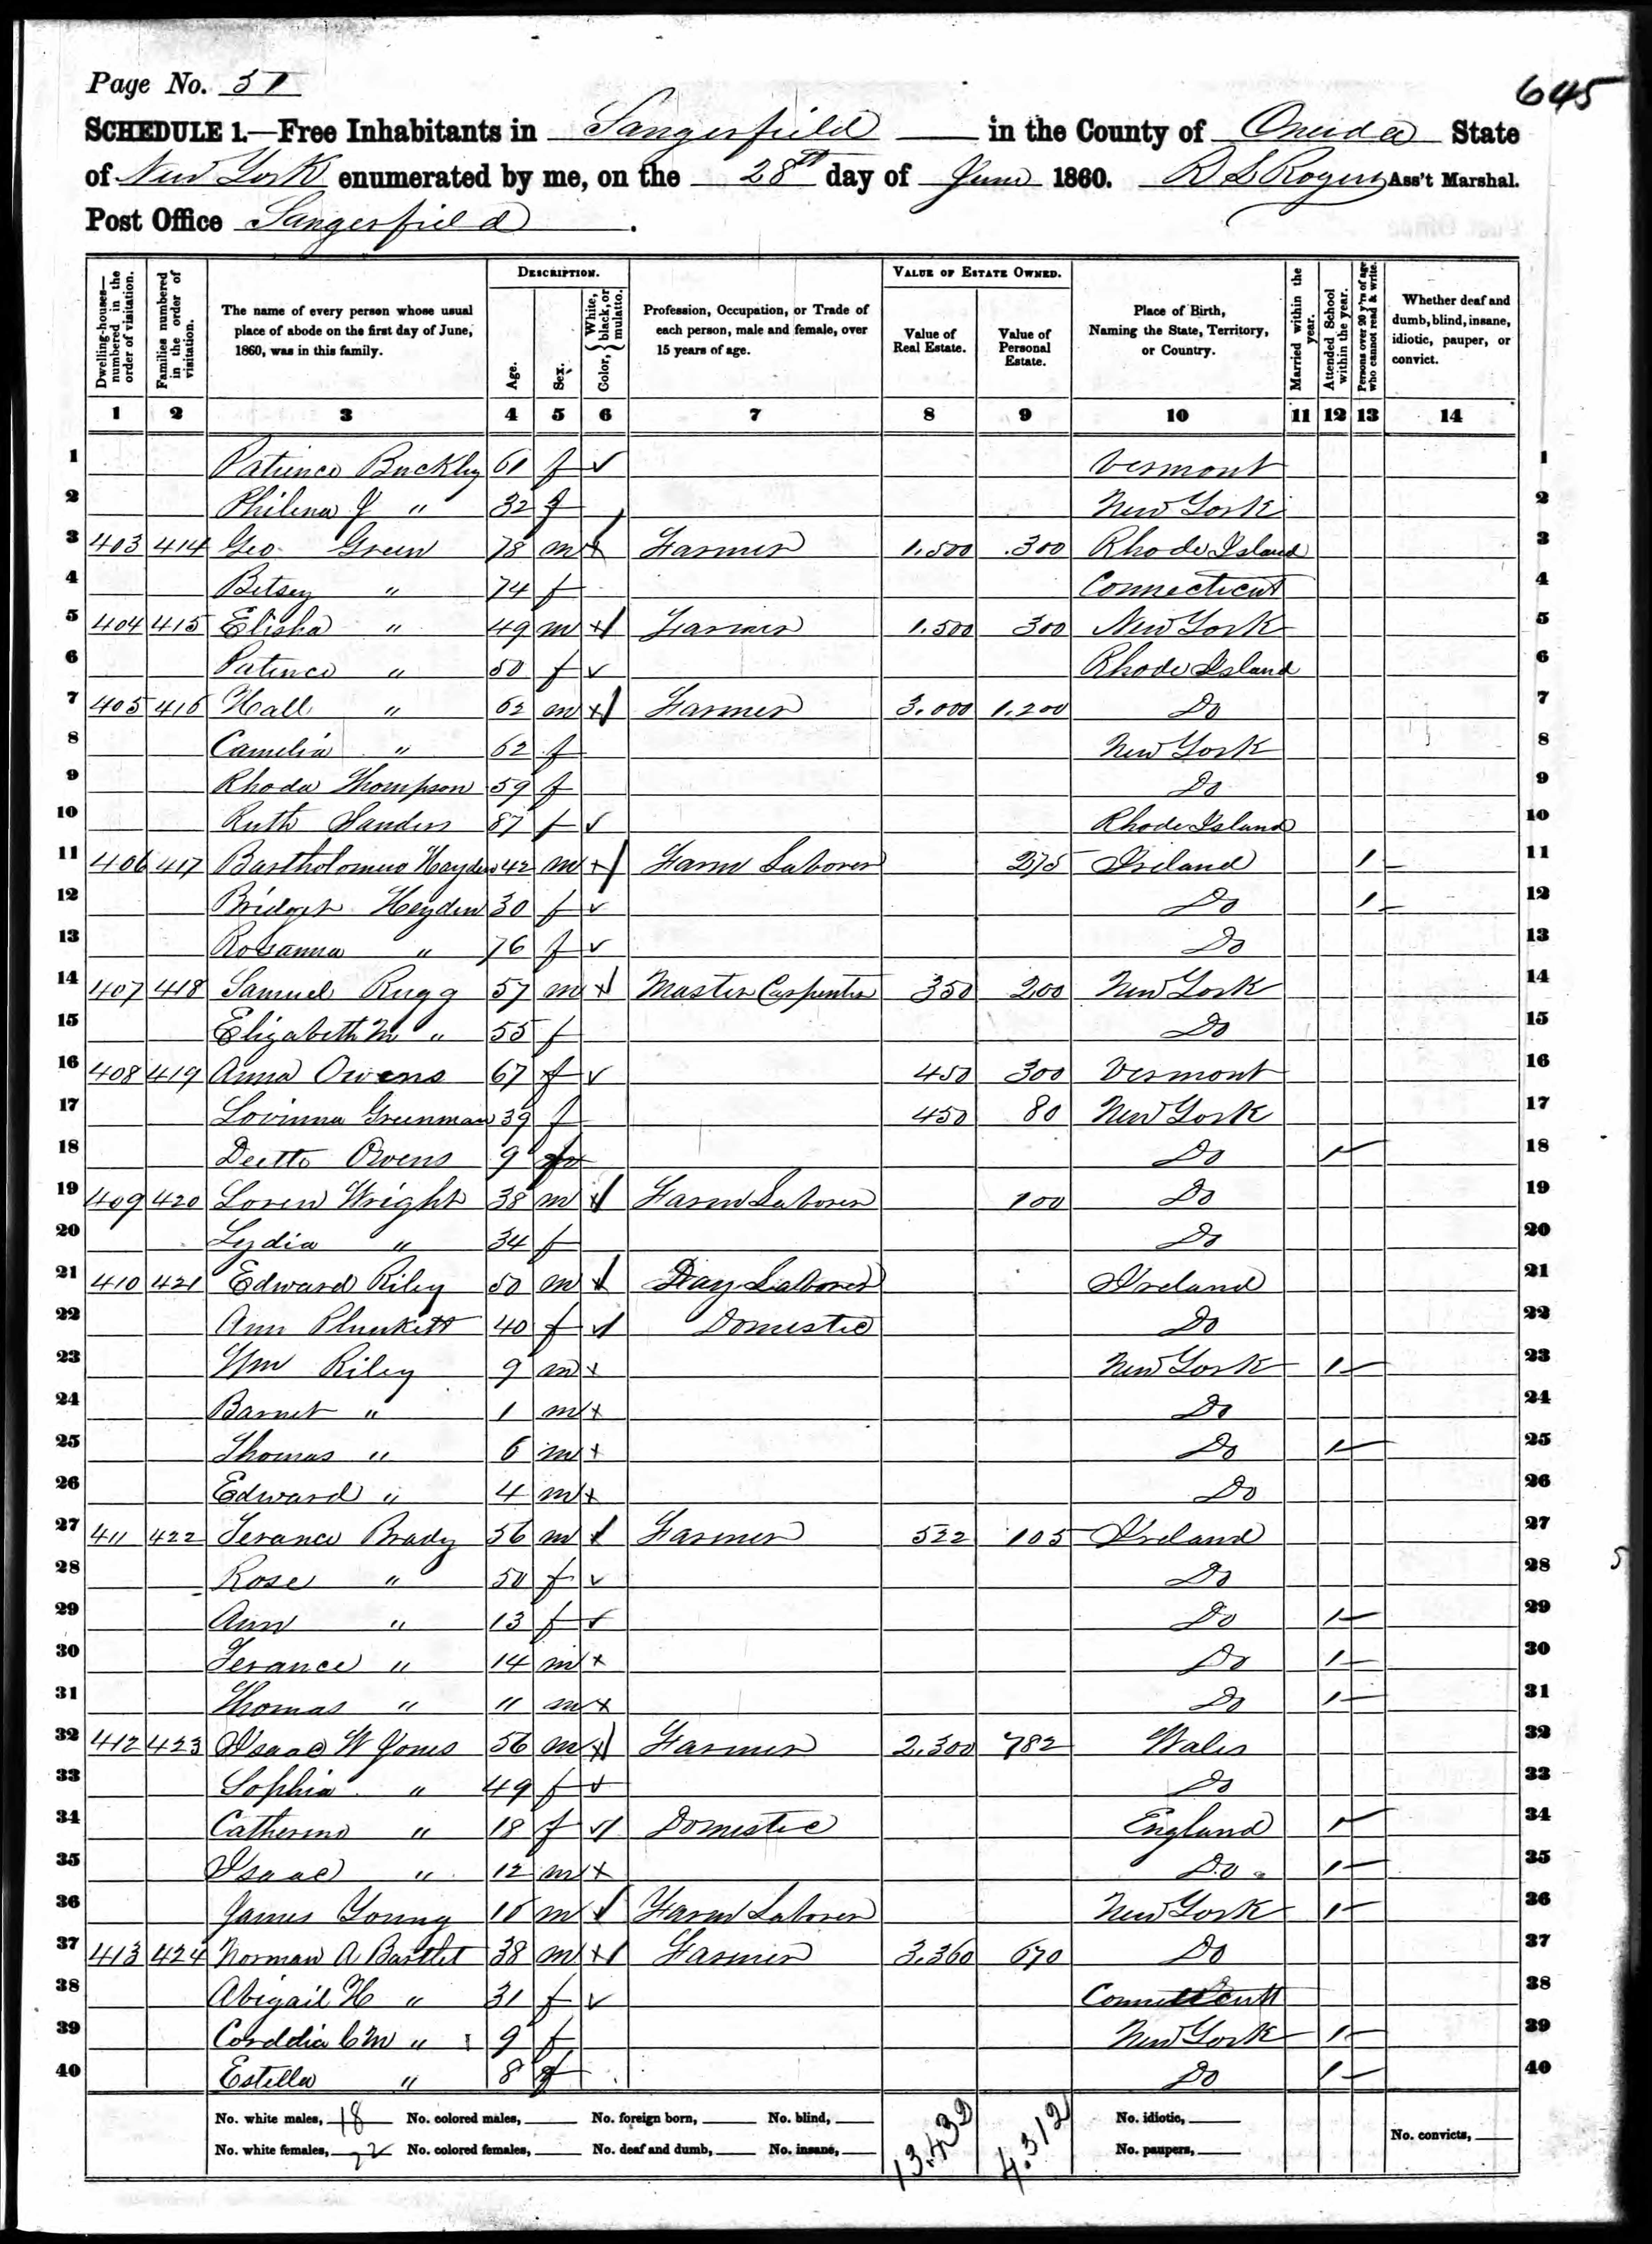 Page No. 51
645
SCHEDULE 1.—Free Inhabitants in Sangerfield in the County of Oneida State
of New York enumerated by me, on the 28th day of June 1860. R S Rogers Ass't Marshal.
Post Office Sangerfield.
Dwelling-houses—numbered in the order of visitation.
Families numbered in the order of visitation.
The name of every person whose usual place of abode on the first day of June, 1860, was in this family.
DESCRIPTION.
Age.
Sex.
Color, } White, black, or mulatto.
Profession, Occupation, or Trade of each person, male and female, over 15 years of age.
VALUE OF ESTATE OWNED.
Value of Real Estate.
Value of Personal Estate.
Place of Birth, Naming the State, Territory, or Country.
Married within the year.
Attended School within the year.
Persons over 20 y'rs of age who cannot read & write.
Whether deaf and dumb, blind, insane, idiotic, pauper, or convict.
1 2 3 4 5 6 7 8 9 10 11 12 13 14
1 Patience Buckley 61 f Vermont 1
2 Philena J " 32 f New York 2
3 403 414 Geo Green 78 m Farmer 1.500 .300 Rhode Island 3
4 Betsey " 74 f Connecticut 4
5 404 415 Elisha " 49 m Farmer 1.500 300 New York 5
6 Patience " 50 f Rhode Island 6
7 405 416 Hall " 62 m Farmer 3.000 1.200 Do 7
8 Camelia " 62 f New York 8
9 Rhoda Thompson 59 f Do 9
10 Ruth Sanders 87 f Rhode Island 10
11 406 417 Bartholomew Heyden 42 m Farm Laborer 275 Ireland 1 11
12 Bridget Heyden 30 f Do 1 12
13 Rosanna " 76 f Do 13
14 407 418 Samuel Rugg 57 m Master Carpenter 350 200 New York 14
15 Elizabeth M " 55 f Do 15
16 408 419 Anna Owens 67 f 450 300 Vermont 16
17 Lovinna Greenman 39 f 450 80 New York 17
18 Deette Owens 9 Do 1 18
19 409 420 Loren Wright 38 m Farm Laborer 100 Do 19
20 Lydia " 34 f Do 20
21 410 421 Edward Riley 50 m Day Laborer Ireland 21
22 Ann Plunkett 40 f Domestic Do 22
23 Wm Riley 9 m New York 1 23
24 Barnet " 1 m Do 24
25 Thomas " 6 m Do 1 25
26 Edward " 4 m Do 26
27 411 422 Terance Brady 56 m Farmer 522 105 Ireland 27
28 Rose " 50 f Do 28
29 Ann " 13 f Do 1 29
30 Terance " 14 m Do 1 30
31 Thomas " 11 m Do 1 31
32 412 423 Isaac W Jones 56 m Farmer 2.300 782 Wales 32
33 Sophia " 49 f Do 33
34 Catherine " 18 f Domestic England 1 34
35 Isaac " 12 m Do 1 35
36 James Young 16 m Farm Laborer New York 1 36
37 413 424 Norman A Bartlet 38 m Farmer 3.360 670 Do 37
38 Abigail H " 31 f 38
39 Corddia C M " 9 f New York 1 39
40 Estella " 8 f Do 1 40
No. white males, 18 No. colored males, No. foreign born, No. blind, 13.432 4.312 No. idiotic,
No. white females, 22 No. colored females, No. deaf and dumb, No. insane, No. paupers, No. convicts,